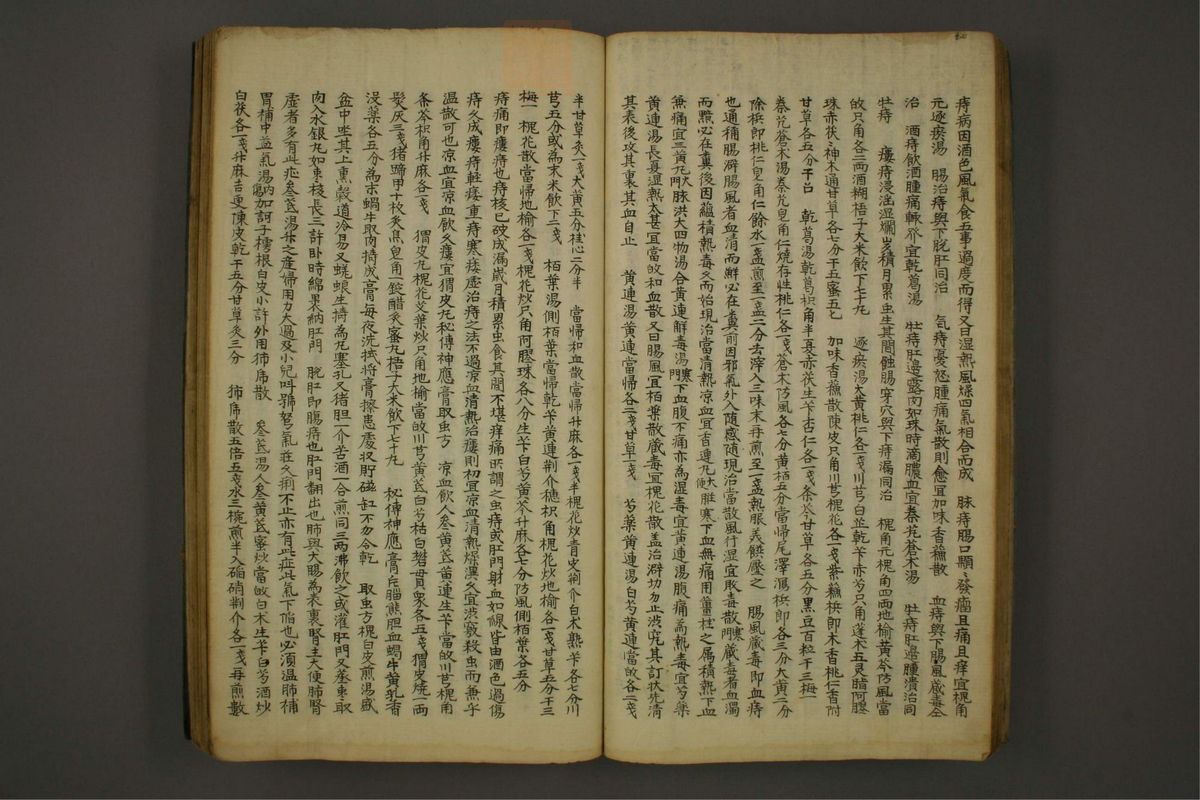 痔病因酒色風氣食五事過度而得又曰湿熱風燥四氣相合而成 脉痔腸口顆〻發瘟且痛且痒宜槐角
元逐瘀湯 腸治痔與下脫肛同治 氣痔憂怒腫痛氣散則愈宜加味香蘓散 血痔與下腸風蔵毒仝
治 酒痔飮酒腫痛輙發宜乾葛湯 牡痔肛邉露肉如珠時滴膿血宜秦艽蒼朮湯 牡痔肛邉腫潰治同
牡痔 瘻痔浸滛湿爛歲積月累虫生其間蝕腸穿穴與下痔漏同治 槐角元槐角四両地榆黄芩防風當
攸只角各二両酒糊梧子大米飮下七十丸 逐瘀湯大黄桃仁各一戔川芎白芷乾芐赤芍只角蓬朮五灵脂阿膠
珠赤茯〻神木通甘草各七分干五蜜五匕 加味香蘓散陳皮只角川芎槐花各一戔紫蘓梹郎木香桃仁香附
甘草各五分干呂 乾葛湯乾葛枳角半夏赤茯生芐杏仁各一戔条芩甘草各五分黒豆百粒干三梅一
秦艽蒼朮湯秦艽皂角仁燒存性桃仁各一戔蒼朮防風各七分黄栢五分當帰尾澤瀉梹郎各三分大黄二分
除梹郎桃仁皂角仁餘水一盞煎至一盞二分去滓入三味末再煎至一盞熱服羙饌壓之 腸風蔵毒即血痔
也通稱腸澼腸風者血清而鮮必在糞前因邪氣外入随感随現治當散風行湿宜敗毒散蔵毒者血濁
而黯必在糞後因蘊積熱毒久而始現治當清熱凉血宜香連丸大胜寒下血無痛用薑桂之属積熱下血
兼痛宜三黄丸脉洪大四物湯合黄連觧毒湯下血腹不痛亦為湿毒宜黄連湯腹痛為熱毒宜芍藥
黄連湯長夏湿熱太甚宜當攸和血散又曰腸風宜栢葉散蔵毒宜槐花散盖治澼切力止渋究其訂状先清
其表後攻其裏其血自止 黄連湯黄連當帰各二戔甘草一戔 芍藥黄連湯白芍黄連當攸各二戔
半甘草炙一戔大黄五分桂心二分半 當帰和血散當帰升麻各一戔半槐花炒青皮荊介白朮熟芐各七分川
芎五分或為末米飮下二戔 栢葉湯側栢葉當帰乾芐黄連荊介穗枳角槐花炒地榆各一戔甘草五分干三
梅一 槐花散當帰地榆各一戔槐花炒只角阿膠珠各八分生芐白芍黄芩升麻各七分防風側栢葉各五分
痔痛即瘻痔也痔核已破成漏歲月積累虫食其間不堪痒痛所謂之虫痔或肛門射血如線皆由酒色過傷
痔久成瘻痔軽瘘重痔寒瘘虛治痔之法不過凉血清熱治瘻則初宜凉血清熱燥湿久宜渋竅殺虫而兼乎
温散可也凉血宜凉血飮久瘻宜猬皮丸秘傳神應膏取虫方 凉血飮人參黄芪黄連生芐當攸川芎槐角
条芩枳角升麻各一戔 猬皮丸槐花艾葉炒只角地榆當攸川芎黄芪白芍枯白礬貫衆各五戔猬皮燒一両
髮灰三戔猪蹄甲十枚炙焦皂角一錠醋炙蜜丸梧子大米飮下七十丸 秘傳神應膏片腦熊胆血蝎牛黄乳香
沒藥各五分為末蝸牛取肉搗成膏每夜洗拭將膏擦患處収貯磁缸不勿令乾 取虫方槐白皮煎湯盛
盆中坐其上熏榖道冷易又蜣蜋生搗為丸塞孔又猪胆一介苦酒一合煎同三両沸飮之或灌肛門又蒸棗取
肉入水銀丸如棗核長三許卧時綿裹納肛門 脫肛即腸痔也肛門翻出也肺與大腸為表裏腎主大便肺腎
虛者多有此症參芪湯升之產婦用力太過及小兒呌號弩氣荘久痢不止亦有此症此氣下陥也必須温肺補
胃補中益氣湯加訶子樗根白皮小許外用㧊席散 參芪湯人參黄芪蜜炒當攸白朮生芐白芍酒炒
白茯各一戔升麻吉更陳皮乾干五分甘草炙三分 㧊席散五倍五戔水三椀煎半入硝硝荊介各一戔每煎數